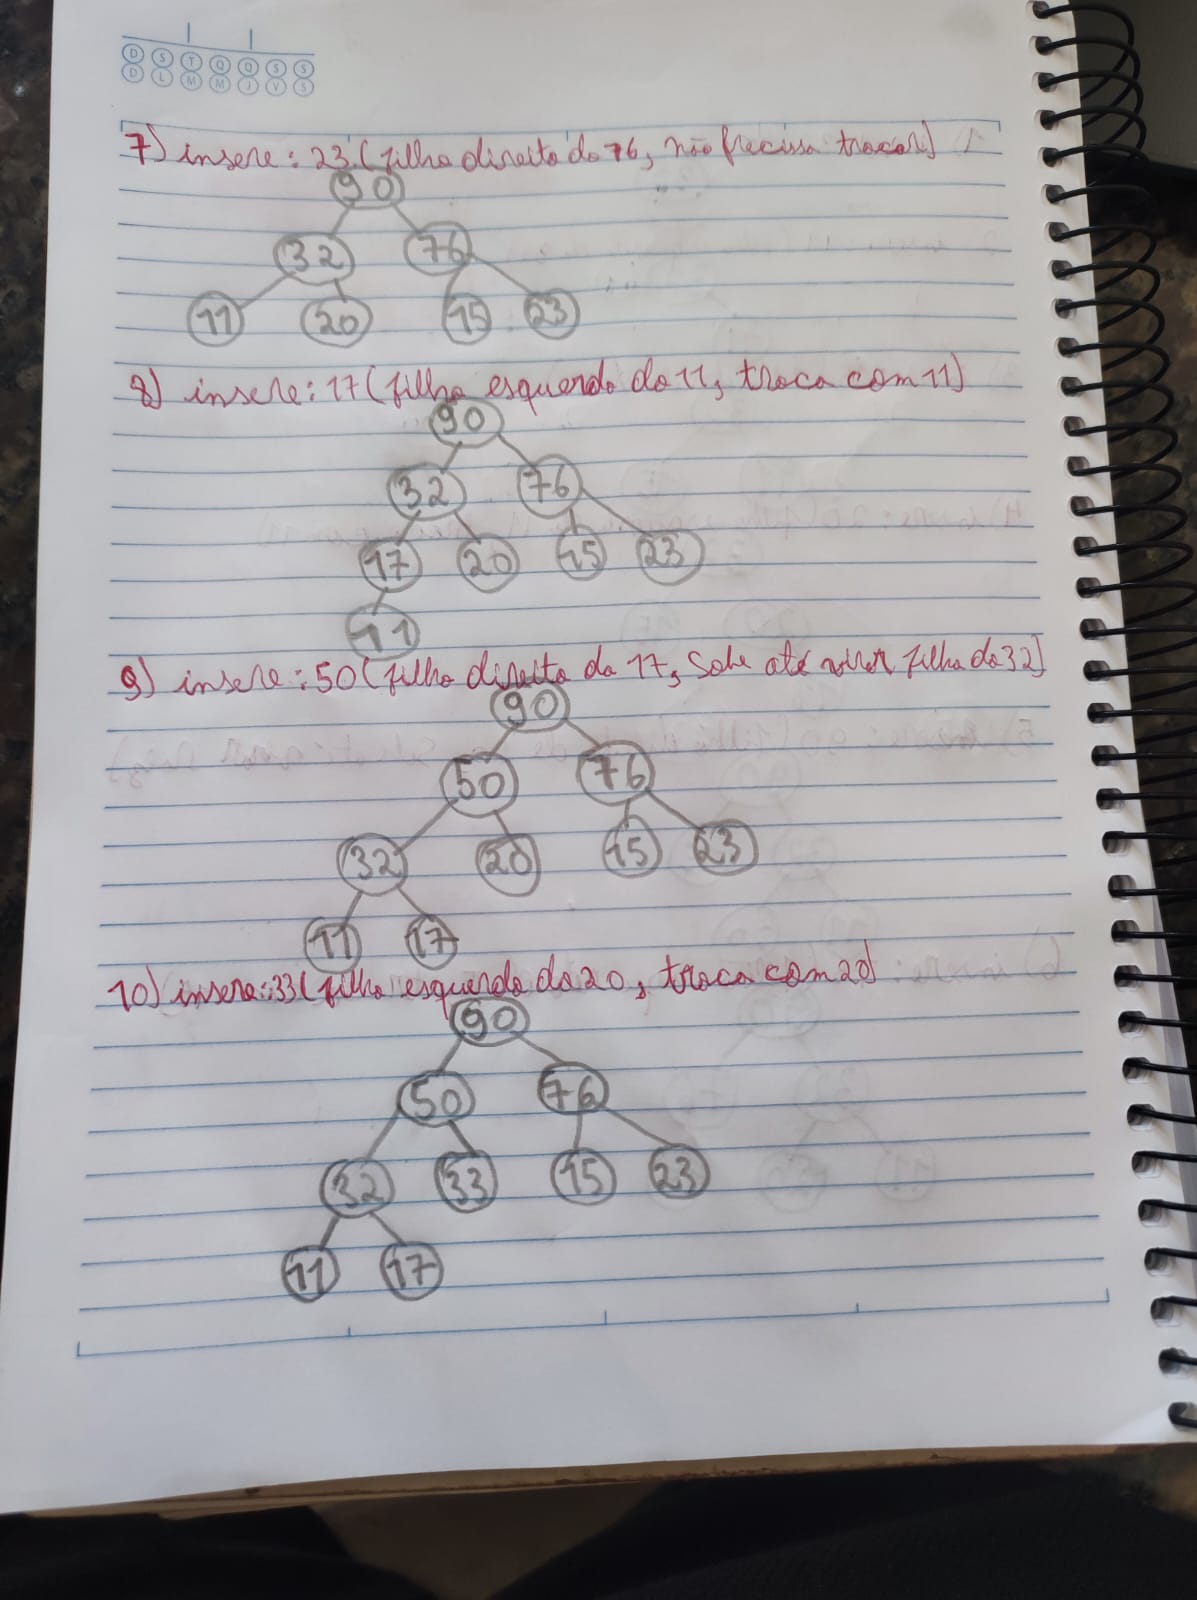 D S T Q Q S S
D L M M J V S
7) insere: 23 (filho direito do 76, não precisa trocar)
90
32 76
11 20 15 23
8) insere: 17 (filho esquerdo do 11, troca com 11)
90
32 76
17 20 15 23
11
9) insere: 50 (filho direito do 17, sobe até virar filho do 32)
90
50 76
32 20 15 23
11 17
10) insere: 33 (filho esquerdo do 20, troca com 20)
90
50 76
32 33 15 23
11 17